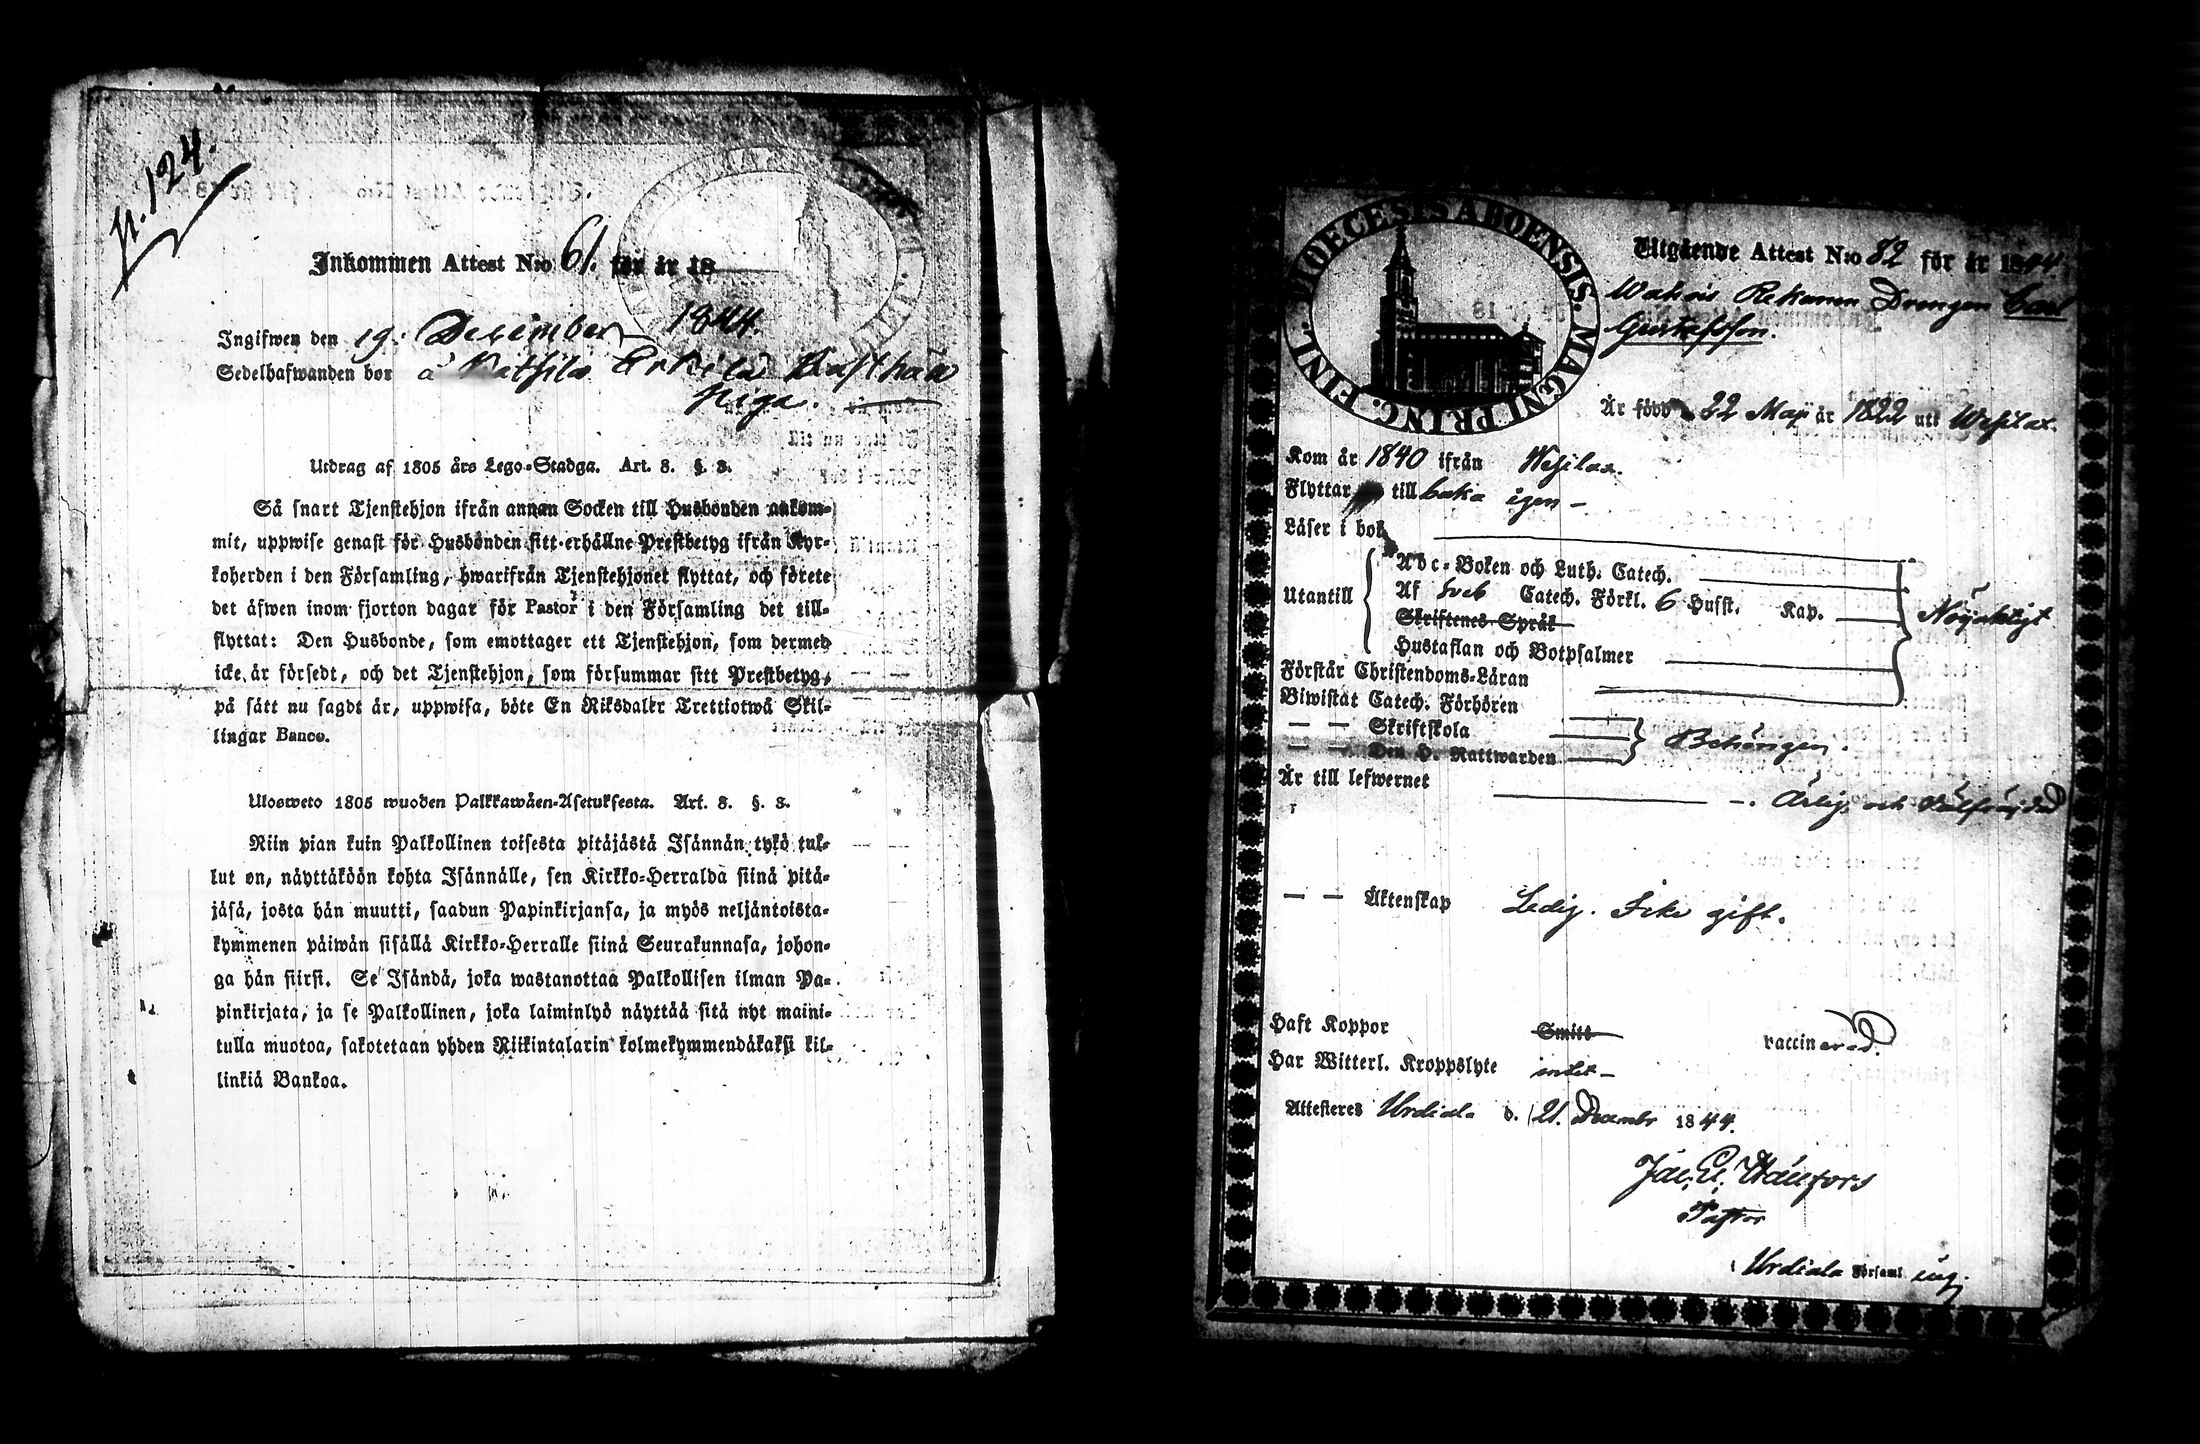 N. 124.
Inkommen Attest N:o 61. för år 18
Ingifwen den 19. December 1844.
Sedelhafwanden bor å Erkilä
Utdrag af 1805 års Lego-Stadga. Art. 8. §. 3.
Så snart Tjenstehjon ifrån annan Socken till Husbonden ankom-
mit, uppwise genast för Husbonden sitt erhållne Prestbetyg ifrån Kyr-
koherden i den Församling, hwarifrån Tjenstehjonet flyttat, och förete
det äfwen inom fjorton dagar för Pastor i den Församling det till-
flyttat: Den Husbonde, som emottager ett Tjenstehjon, som dermed
icke är försedt, och det Tjenstehjon, som försummar sitt Prestbetyg,
på sätt nu sagdt är, uppwisa, böte En Riksdaler Trettiotwå Skil-
lingar Banco.
Ulosweto 1805 wuoden Palkkawäen-Asetuksesta. Art. 8. §. 3.
Niin pian kuin Palkollinen toisesta pitäjästä Isännän tykö tul-
lut on, näyttäköön kohta Isännälle, sen Kirkko-Herralda siinä pitä-
jäsä, josta hän muutti, saadun Papinkirjansa, ja myös neljäntoista-
kymmenen päiwän sisällä Kirkko-Herralle siinä Seurakunnasa, johon-
ga hän siirsi. Se Isändä, joka wastanottaa Palkollisen ilman Pa-
pinkirjata, ja se Palkollinen, joka laiminlyö näyttää sitä nyt maini-
tulla muotoa, sakotetaan yhden Riikintalarin kolmekymmendäkaksi kil-
linkiä Bankoa.
DIOECESIS ABOENSIS. MAGNI PRINC. FINL.
Utgående Attest N:o 82 för år 1844
Drengen Carl
Gustafsson.
Är född d. 22 Maji år 1822 uti Wesilax.
Kom år 1840 ifrån Wesilax.
Flyttar till baka igen –
Läser i bok
Utantill
Abc-Boken och Luth. Catech.
Af Sveb Catech. Förkl. 6 Hufst. Kap.
Skriftenes Språk
Hustaflan och Botpsalmer
Nöjaktigt
Förstår Christendoms-Läran
Biwistat Catech. Förhören
— — Skriftskola
— — Den H. Nattwarden
Behörigen.
Är till lefwernet —. Ärlig och Välfrejdad
— — Äktenskap Ledig. Icke gift.
Haft Koppor Smitt vaccinerad.
Har Witterl. Kroppslyte intet –
Attesteres Urdiala d. 21. Decembr 1844.
Jac. E. Wallfors
Pastor
i Urdiala Församl ing.